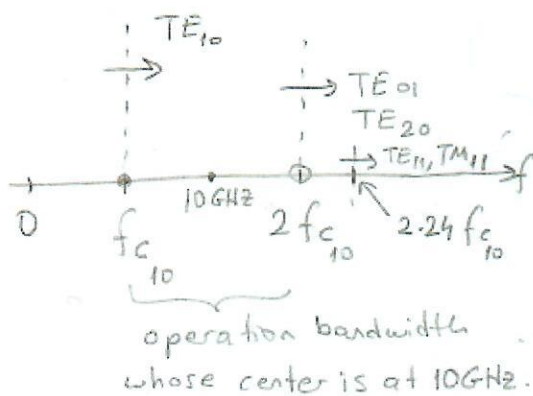 TE₁₀
TE₀₁
TE₂₀
TE₁₁, TM₁₁
10GHz
f
0
f_c₁₀
2f_c₁₀
2.24 f_c₁₀
operation bandwidth
whose center is at 10GHz.